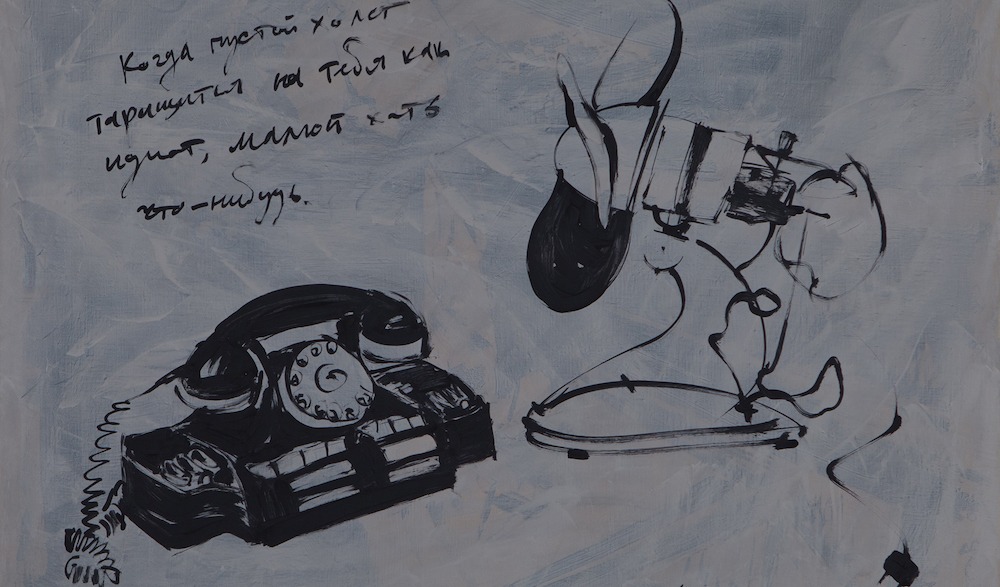 Когда пустой холст
таращится на тебя как
идиот, малюй хоть
что-нибудь.